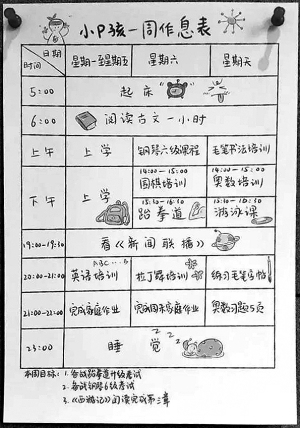 小P孩一周作息表
日期
时间
星期一至星期五
星期六
星期天
5:00
起床
6:00
阅读古文一小时
上午
上学
钢琴六级课程
毛笔书法培训
下午
上学
14:00-15:00
围棋培训
14:00-15:00
奥数培训
15:10-16:30
跆拳道
15:10-16:30
游泳课
19:00-19:30
看《新闻联播》
20:00-21:00
ABC...
英语培训
拉丁舞培训
练习毛笔字帖
21:00-22:00
完成家庭作业
完成周末家庭作业
奥数习题5页
23:00
睡觉
ZZZ
本周目标:1.备战跆拳道升级考试
2.备战钢琴6级考试
3.《西游记》阅读完成第三章